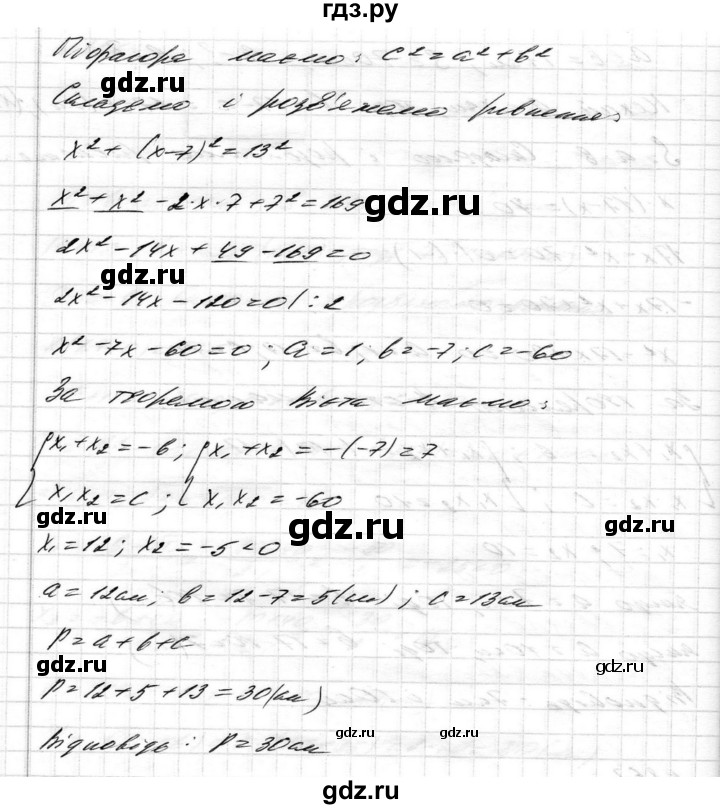 гдз.ру
Піфагора маємо: c² = a² + b²
gdz.ru
Складемо і розв'яжемо рівняння:
x² + (x-7)² = 13²
gdz.ru
x² + x² - 2·x·7 + 7² = 169
gdz.ru
2x² - 14x + 49 - 169 = 0
gdz.ru
2x² - 14x - 120 = 0 | : 2
x² - 7x - 60 = 0; a = 1; b = -7; c = -60
За теоремою Вієта маємо:
{x₁ + x₂ = -b; {x₁ + x₂ = -(-7) = 7
x₁x₂ = c; x₁x₂ = -60
gdz.ru gdz.ru gdz.ru
x₁ = 12; x₂ = -5 < 0
a = 12см; b = 12 - 7 = 5(см); c = 13см
P = a + b + c
gdz.ru gdz.ru
P = 12 + 5 + 13 = 30(см)
gdz.ru gdz.ru
Відповідь: P = 30см
gdz.ru